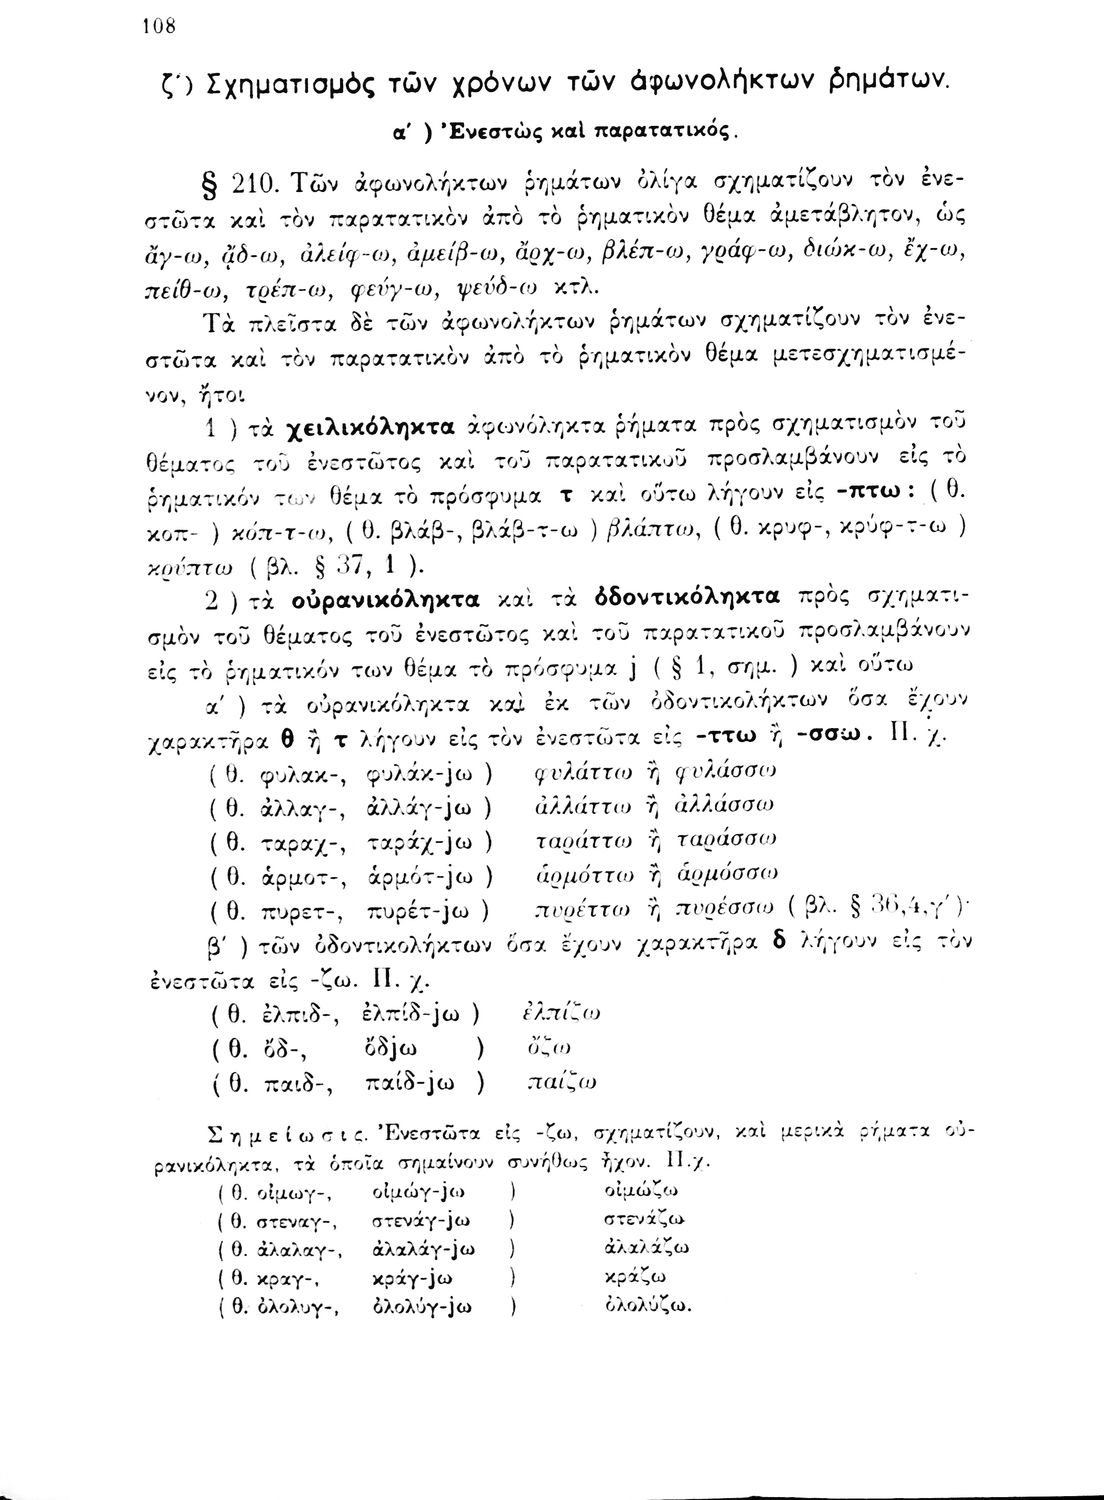 108
ζ΄) Σχηματισμὸς τῶν χρόνων τῶν ἀφωνολήκτων ῥημάτων.
α΄ ) Ἐνεστὼς καὶ παρατατικός.
§ 210. Τῶν ἀφωνολήκτων ῥημάτων ὀλίγα σχηματίζουν τὸν ἐνε-
στῶτα καὶ τὸν παρατατικὸν ἀπὸ τὸ ῥηματικὸν θέμα ἀμετάβλητον, ὡς
ἄγ-ω, ᾄδ-ω, ἀλείφ-ω, ἀμείβ-ω, ἄρχ-ω, βλέπ-ω, γράφ-ω, διώκ-ω, ἔχ-ω,
πείθ-ω, τρέπ-ω, φεύγ-ω, ψεύδ-ω κτλ.
Τὰ πλεῖστα δὲ τῶν ἀφωνολήκτων ῥημάτων σχηματίζουν τὸν ἐνε-
στῶτα καὶ τὸν παρατατικὸν ἀπὸ τὸ ῥηματικὸν θέμα μετεσχηματισμέ-
νον, ἤτοι
1 ) τὰ χειλικόληκτα ἀφωνόληκτα ῥήματα πρὸς σχηματισμὸν τοῦ
θέματος τοῦ ἐνεστῶτος καὶ τοῦ παρατατικοῦ προσλαμβάνουν εἰς τὸ
ῥηματικόν των θέμα τὸ πρόσφυμα τ καὶ οὕτω λήγουν εἰς -πτω : ( θ.
κοπ- ) κόπ-τ-ω, ( θ. βλάβ-, βλάβ-τ-ω ) βλάπτω, ( θ. κρυφ-, κρύφ-τ-ω )
κρύπτω ( βλ. § 37, 1 ).
2 ) τὰ οὐρανικόληκτα καὶ τὰ ὀδοντικόληκτα πρὸς σχηματι-
σμὸν τοῦ θέματος τοῦ ἐνεστῶτος καὶ τοῦ παρατατικοῦ προσλαμβάνουν
εἰς τὸ ῥηματικόν των θέμα τὸ πρόσφυμα j ( § 1, σημ. ) καὶ οὕτω
α΄ ) τὰ οὐρανικόληκτα καὶ ἐκ τῶν ὀδοντικολήκτων ὅσα ἔχουν
χαρακτῆρα θ ἢ τ λήγουν εἰς τὸν ἐνεστῶτα εἰς -ττω ἢ -σσω. Π. χ.
( θ. φυλακ-, φυλάκ-jω ) φυλάττω ἢ φυλάσσω
( θ. ἀλλαγ-, ἀλλάγ-jω ) ἀλλάττω ἢ ἀλλάσσω
( θ. ταραχ-, ταράχ-jω ) ταράττω ἢ ταράσσω
( θ. ἁρμοτ-, ἁρμότ-jω ) ἁρμόττω ἢ ἁρμόσσω
( θ. πυρετ-, πυρέτ-jω ) πυρέττω ἢ πυρέσσω ( βλ. § 36,4,γ΄)·
β΄ ) τῶν ὀδοντικολήκτων ὅσα ἔχουν χαρακτῆρα δ λήγουν εἰς τὸν
ἐνεστῶτα εἰς -ζω. Π. χ.
( θ. ἐλπιδ-, ἐλπίδ-jω ) ἐλπίζω
( θ. ὄδ-, ὄδjω ) ὄζω
( θ. παιδ-, παίδ-jω ) παίζω
Σημείωσις. Ἐνεστῶτα εἰς -ζω, σχηματίζουν, καὶ μερικὰ ρήματα οὐ-
ρανικόληκτα, τὰ ὁποῖα σημαίνουν συνήθως ἦχον. Π.χ.
( θ. οἰμωγ-, οἰμώγ-jω ) οἰμώζω
( θ. στεναγ-, στενάγ-jω ) στενάζω
( θ. ἀλαλαγ-, ἀλαλάγ-jω ) ἀλαλάζω
( θ. κραγ-, κράγ-jω ) κράζω
( θ. ὀλολυγ-, ὀλολύγ-jω ) ὀλολύζω.